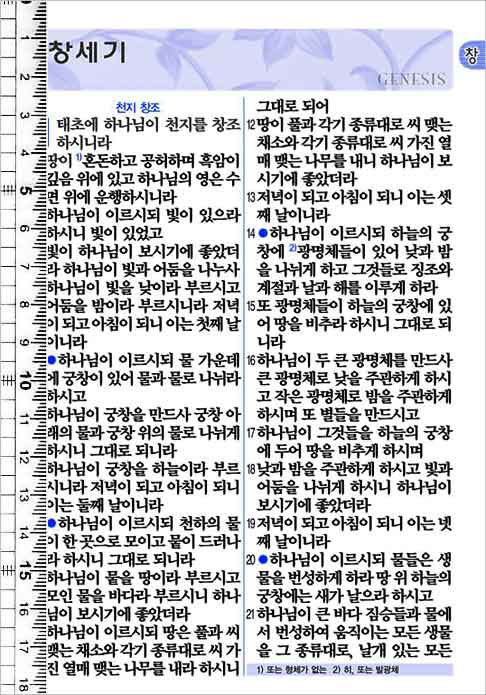 창세기
GENESIS
창
천지 창조
태초에 하나님이 천지를 창조
하시니라
땅이 1)혼돈하고 공허하며 흑암이
깊음 위에 있고 하나님의 영은 수
면 위에 운행하시니라
하나님이 이르시되 빛이 있으라
하시니 빛이 있었고
빛이 하나님이 보시기에 좋았더
라 하나님이 빛과 어둠을 나누사
하나님이 빛을 낮이라 부르시고
어둠을 밤이라 부르시니라 저녁
이 되고 아침이 되니 이는 첫째 날
이니라
●하나님이 이르시되 물 가운데
에 궁창이 있어 물과 물로 나뉘라
하시고
하나님이 궁창을 만드사 궁창 아
래의 물과 궁창 위의 물로 나뉘게
하시니 그대로 되니라
하나님이 궁창을 하늘이라 부르
시니라 저녁이 되고 아침이 되니
이는 둘째 날이니라
●하나님이 이르시되 천하의 물
이 한 곳으로 모이고 뭍이 드러나
라 하시니 그대로 되니라
하나님이 뭍을 땅이라 부르시고
모인 물을 바다라 부르시니 하나
님이 보시기에 좋았더라
하나님이 이르시되 땅은 풀과 씨
맺는 채소와 각기 종류대로 씨 가
진 열매 맺는 나무를 내라 하시니
그대로 되어
12 땅이 풀과 각기 종류대로 씨 맺는
채소와 각기 종류대로 씨 가진 열
매 맺는 나무를 내니 하나님이 보
시기에 좋았더라
13 저녁이 되고 아침이 되니 이는 셋
째 날이니라
14 ●하나님이 이르시되 하늘의 궁
창에 2)광명체들이 있어 낮과 밤
을 나뉘게 하고 그것들로 징조와
계절과 날과 해를 이루게 하라
15 또 광명체들이 하늘의 궁창에 있
어 땅을 비추라 하시니 그대로 되
니라
16 하나님이 두 큰 광명체를 만드사
큰 광명체로 낮을 주관하게 하시
고 작은 광명체로 밤을 주관하게
하시며 또 별들을 만드시고
17 하나님이 그것들을 하늘의 궁창
에 두어 땅을 비추게 하시며
18 낮과 밤을 주관하게 하시고 빛과
어둠을 나뉘게 하시니 하나님이
보시기에 좋았더라
19 저녁이 되고 아침이 되니 이는 넷
째 날이니라
20 ●하나님이 이르시되 물들은 생
물을 번성하게 하라 땅 위 하늘의
궁창에는 새가 날으라 하시고
21 하나님이 큰 바다 짐승들과 물에
서 번성하여 움직이는 모든 생물
을 그 종류대로, 날개 있는 모든
1) 또는 형체가 없는 2) 히, 또는 발광체
0
1
2
3
4
5
6
7
8
9
10
11
12
13
14
15
16
17
18